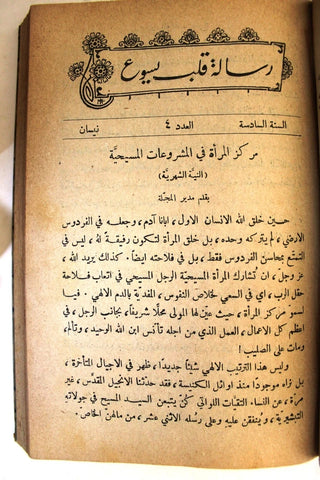 رسالة قلب يسوع
السنة السادسة العدد ٤ نيسان
مركز المرأة في المشروعات المسيحيَّة
(النية الشهريَّة)
بقلم مدير المجلة
حين خلق الله الانسان الاول، ابانا آدم، وجعله في الفردوس
الارضي، لم يتركه وحده، بل خلق المرأة لتكون رفيقة له، ليس في
التمتع بمحاسن الفردوس فقط، بل في فلاحته ايضاً. كذلك يريد الله،
عز وجل، ان تشارك المرأة المسيحيَّة الرجل المسيحي في اتعاب فلاحة
حقل الرب، اي في السعي لخلاص النفوس، المفديَّة بالدم الالهي. فيا
لسمو مركز المرأة، حيث عيَّن لها المولى محلًّا شريفاً، بجانب الرجل، في
اعظم كل الاعمال، العمل الذي من اجله تأنَّس ابن الله الوحيد، وتألم،
ومات على الصليب!
وليس هذا الترتيب الالهي شيئاً جديداً، ظهر في الاجيال المتأخرة،
بل نراه موجودًا منذ اوائل الكنيسة، فقد حدثنا الانجيل المقدَّس، غير
مرَّة، عن النساء التقيات اللواتي كنَّ يتبعن السيد المسيح في جولاته
التبشيريَّة، وينفقن عليه وعلى رسله الاثني عشر، من مالهنَّ الخاصّ.